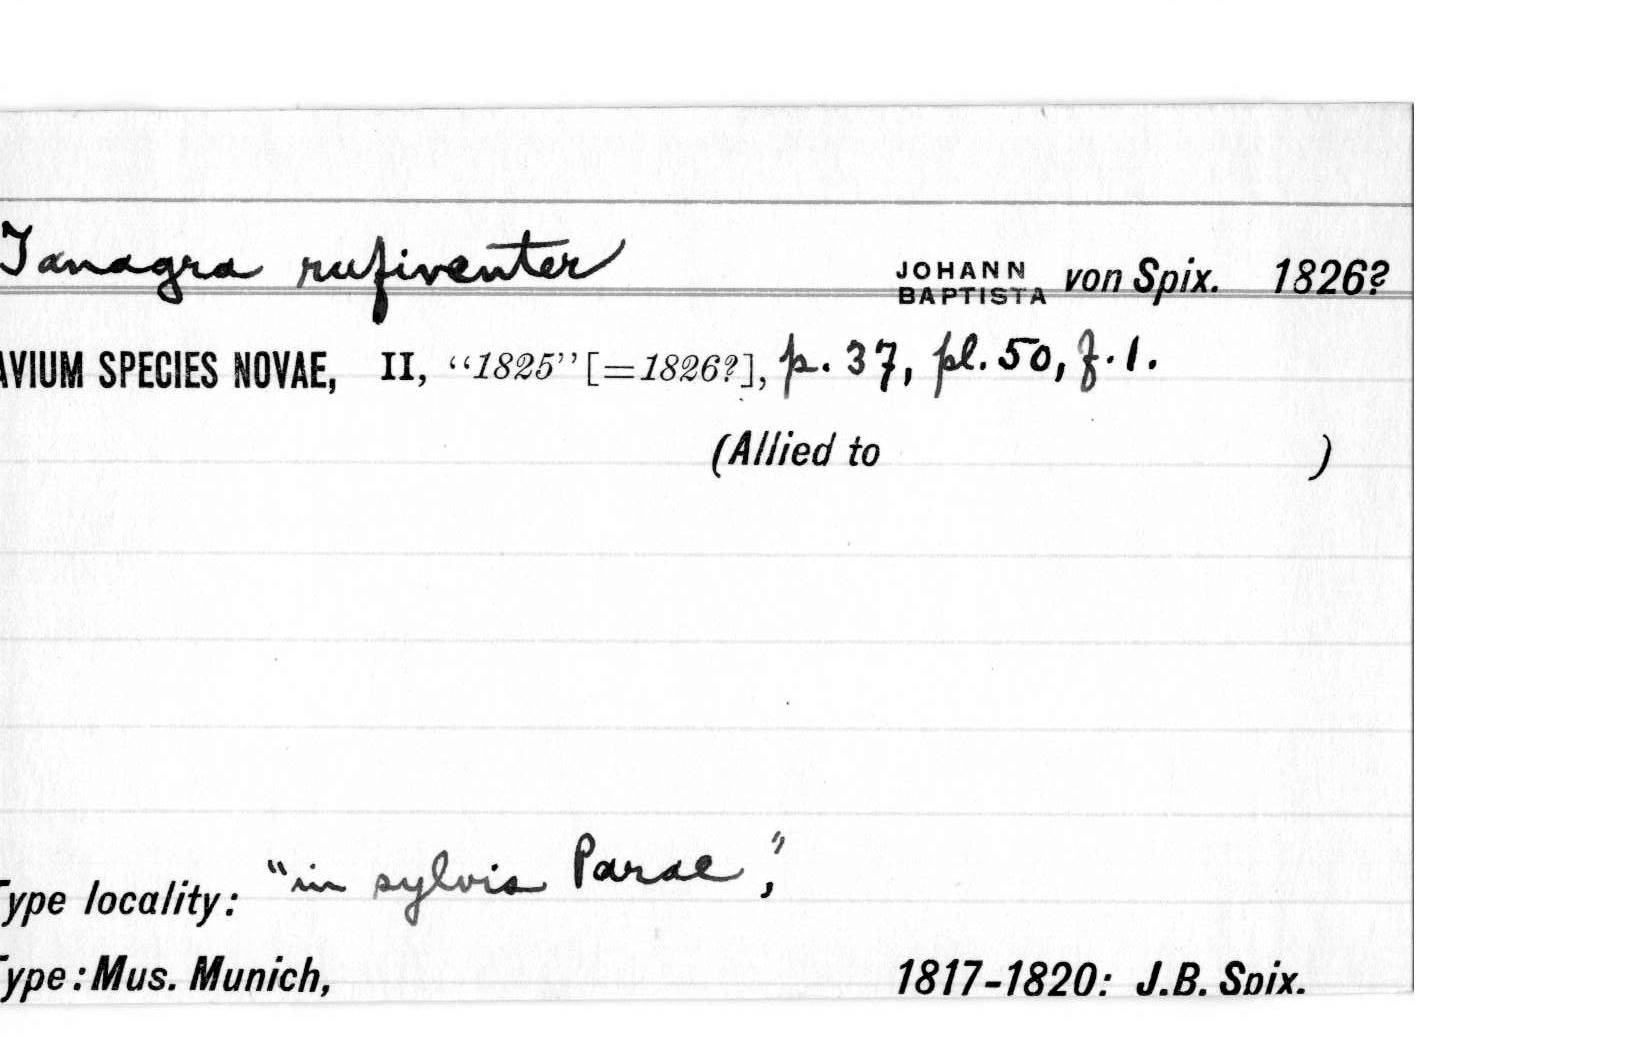 Tanagra rufiventer JOHANN BAPTISTA von Spix. 1826?
AVIUM SPECIES NOVAE, II, “1825” [=1826?], p. 37, pl. 50, f. 1.
(Allied to )
Type locality: "in sylvis Parae",
Type: Mus. Munich, 1817-1820: J.B. Spix.